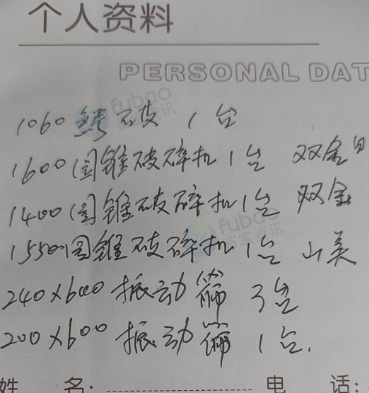 个人资料
PERSONAL DAT
1060 鄂破 1台
1600圆锥破碎机1台 双金
1400圆锥破碎机1台 双金
1550圆锥破碎机1台 山美
240×600 振动筛 3台
200×600 振动筛 1台.
姓 名: 电 话: